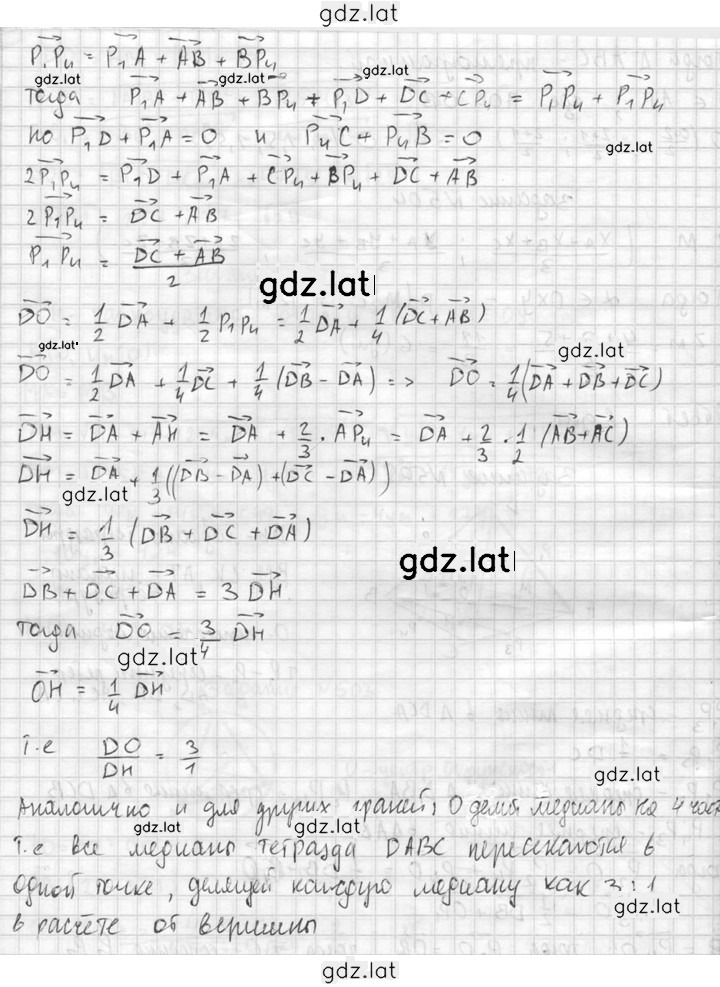 gdz.lat
P₁P₄ = P₁A + AB + BP₄
gdz.lat gdz.lat gdz.lat
тогда P₁A + AB + BP₄ + P₁D + DC + CP₄ = P₁P₄ + P₁P₄
но P₁D + P₁A = 0 и P₄C + P₄B = 0
gdz.lat
2P₁P₄ = P₁D + P₁A + CP₄ + BP₄ + DC + AB
2P₁P₄ = DC + AB
P₁P₄ = (DC + AB)/2
gdz.lat
DO = 1/2 DA + 1/2 P₁P₄ = 1/2 DA + 1/4 (DC + AB)
gdz.lat gdz.lat
DO = 1/2 DA + 1/4 DC + 1/4 (DB - DA) => DO = 1/4 (DA + DB + DC)
DH = DA + AH = DA + 2/3 · AP₄ = DA + 2/3 · 1/2 (AB + AC)
DH = DA + 1/3 ((DB - DA) + (DC - DA))
gdz.lat
DH = 1/3 (DB + DC + DA)
gdz.lat
DB + DC + DA = 3 DH
тогда DO = 3/4 DH
gdz.lat
OH = 1/4 DH
т.е DO/DH = 3/1
gdz.lat
Аналогично и для других граней; О делит медианы на 4 част
gdz.lat gdz.lat
т.е все медианы тетраэда DABC пересекаются в
одной точке, делящей каждую медиану как 3:1
gdz.lat
в расчёте от вершины
gdz.lat